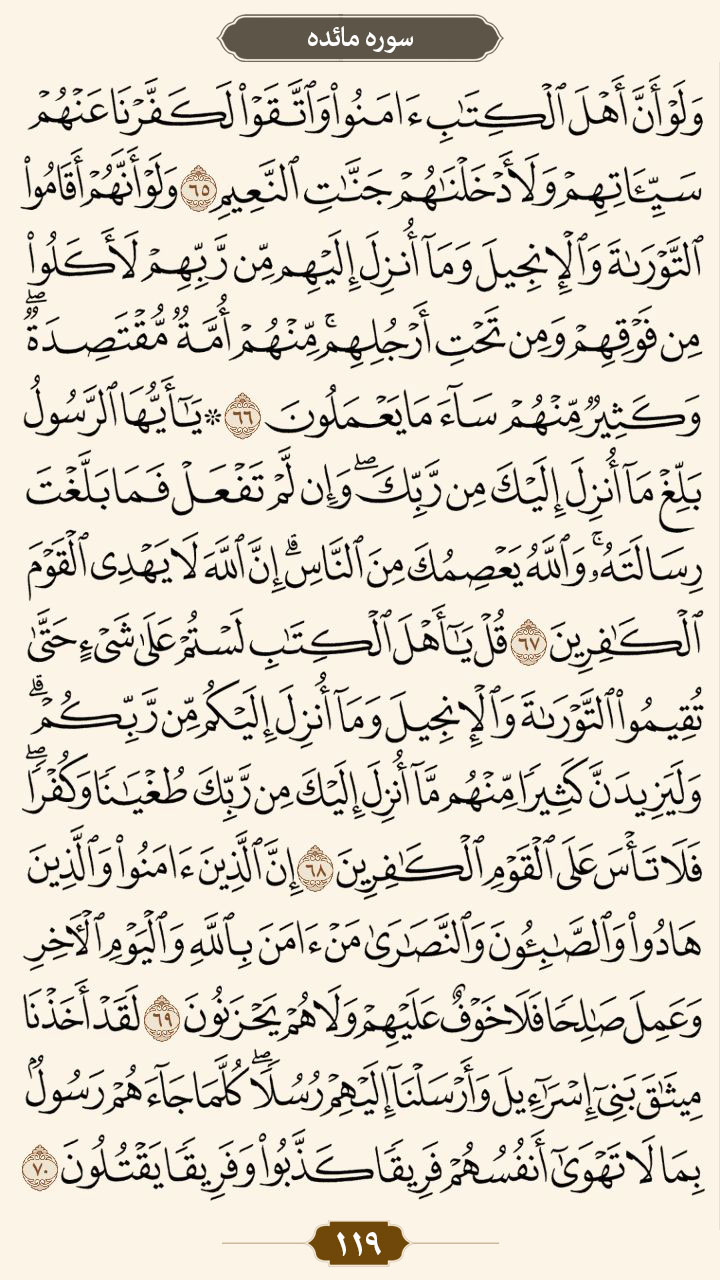 سوره مائده
وَلَوۡ أَنَّ أَهۡلَ ٱلۡكِتَٰبِ ءَامَنُواْ وَٱتَّقَوۡاْ لَكَفَّرۡنَا عَنۡهُمۡ
سَيِّـَٔاتِهِمۡ وَلَأَدۡخَلۡنَٰهُمۡ جَنَّٰتِ ٱلنَّعِيمِ ٦٥ وَلَوۡ أَنَّهُمۡ أَقَامُواْ
ٱلتَّوۡرَىٰةَ وَٱلۡإِنجِيلَ وَمَآ أُنزِلَ إِلَيۡهِم مِّن رَّبِّهِمۡ لَأَكَلُواْ
مِن فَوۡقِهِمۡ وَمِن تَحۡتِ أَرۡجُلِهِمۚ مِّنۡهُمۡ أُمَّةٞ مُّقۡتَصِدَةٞۖ
وَكَثِيرٞ مِّنۡهُمۡ سَآءَ مَا يَعۡمَلُونَ ٦٦ ۞ يَٰٓأَيُّهَا ٱلرَّسُولُ
بَلِّغۡ مَآ أُنزِلَ إِلَيۡكَ مِن رَّبِّكَۖ وَإِن لَّمۡ تَفۡعَلۡ فَمَا بَلَّغۡتَ
رِسَالَتَهُۥۚ وَٱللَّهُ يَعۡصِمُكَ مِنَ ٱلنَّاسِۗ إِنَّ ٱللَّهَ لَا يَهۡدِي ٱلۡقَوۡمَ
ٱلۡكَٰفِرِينَ ٦٧ قُلۡ يَٰٓأَهۡلَ ٱلۡكِتَٰبِ لَسۡتُمۡ عَلَىٰ شَيۡءٍ حَتَّىٰ
تُقِيمُواْ ٱلتَّوۡرَىٰةَ وَٱلۡإِنجِيلَ وَمَآ أُنزِلَ إِلَيۡكُم مِّن رَّبِّكُمۡۗ
وَلَيَزِيدَنَّ كَثِيرٗا مِّنۡهُم مَّآ أُنزِلَ إِلَيۡكَ مِن رَّبِّكَ طُغۡيَٰنٗا وَكُفۡرٗاۖ
فَلَا تَأۡسَ عَلَى ٱلۡقَوۡمِ ٱلۡكَٰفِرِينَ ٦٨ إِنَّ ٱلَّذِينَ ءَامَنُواْ وَٱلَّذِينَ
هَادُواْ وَٱلصَّٰبِـُٔونَ وَٱلنَّصَٰرَىٰ مَنۡ ءَامَنَ بِٱللَّهِ وَٱلۡيَوۡمِ ٱلۡأٓخِرِ
وَعَمِلَ صَٰلِحٗا فَلَا خَوۡفٌ عَلَيۡهِمۡ وَلَا هُمۡ يَحۡزَنُونَ ٦٩ لَقَدۡ أَخَذۡنَا
مِيثَٰقَ بَنِيٓ إِسۡرَٰٓءِيلَ وَأَرۡسَلۡنَآ إِلَيۡهِمۡ رُسُلٗاۖ كُلَّمَا جَآءَهُمۡ رَسُولُۢ
بِمَا لَا تَهۡوَىٰٓ أَنفُسُهُمۡ فَرِيقٗا كَذَّبُواْ وَفَرِيقٗا يَقۡتُلُونَ ٧٠
١١٩